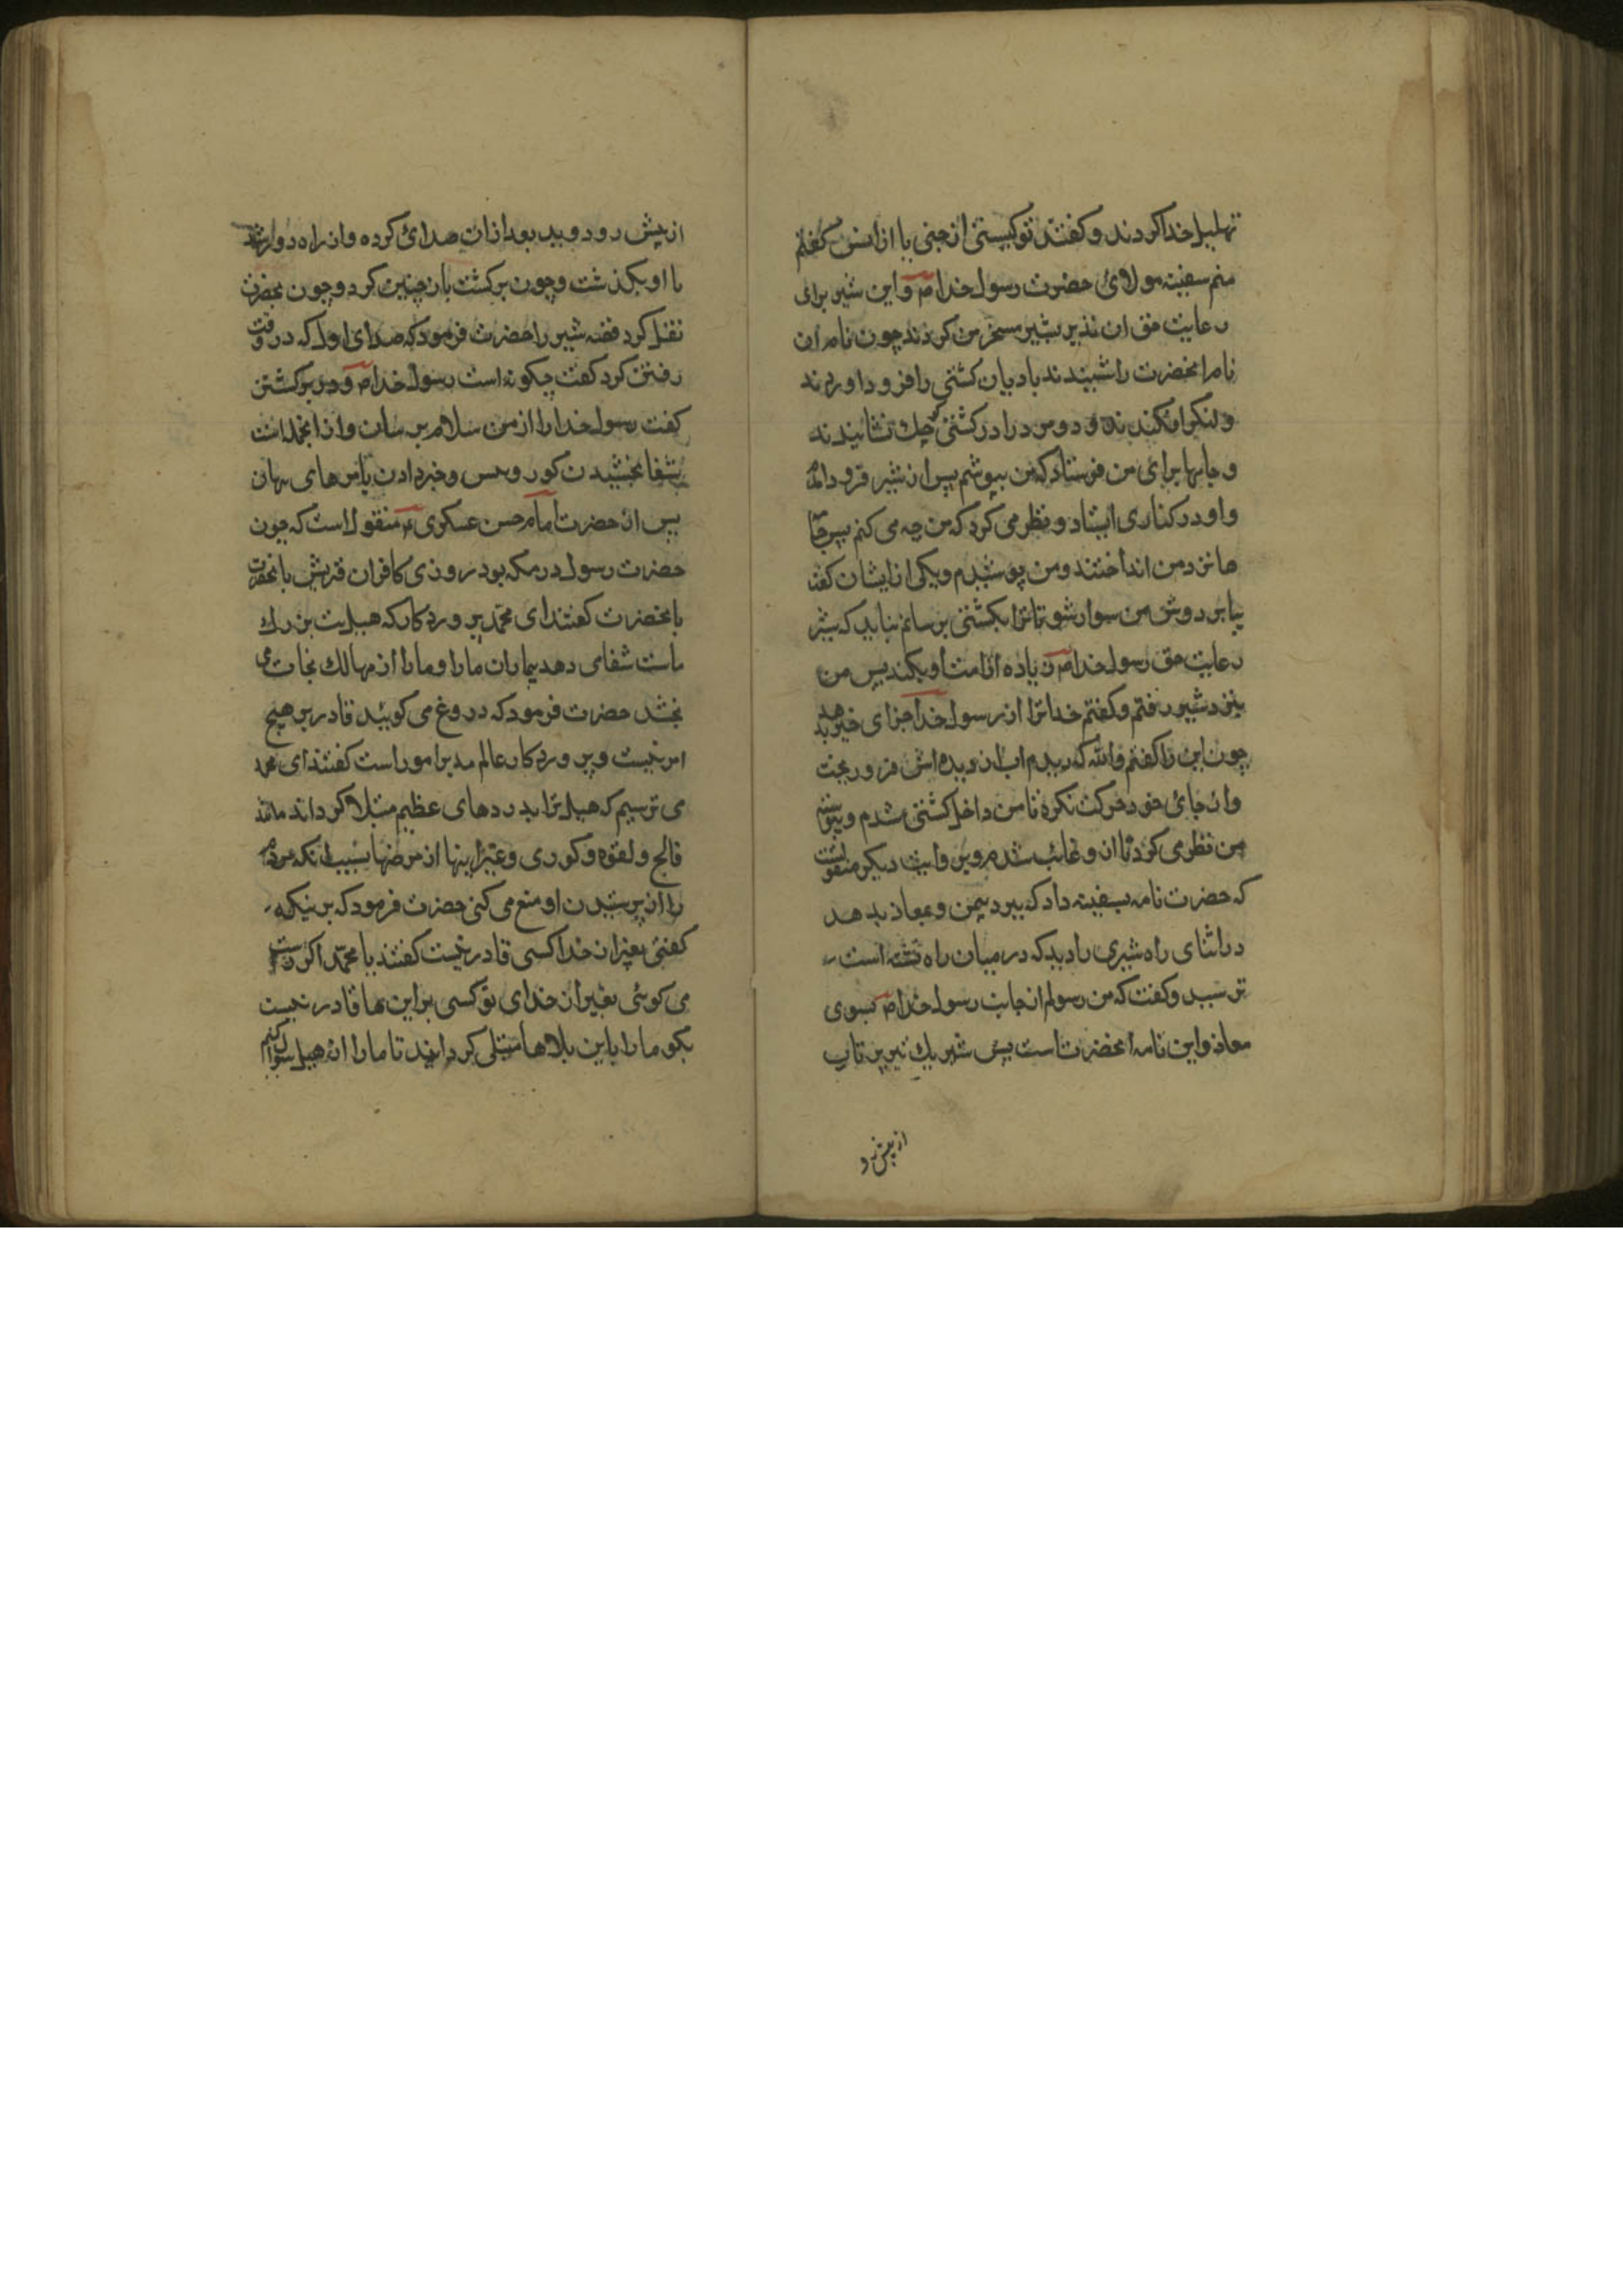 تهلیل خدا کردند و کفتند تو کیستی از جنی یا از انس کفتم
منم سفینه مولائ حضرت رسول خدا ص و این شیر برای
رعایت حق ان نذیر بشیر مسخر من کردند چون نام ان
نام انحضرت را شنیدند بادبان کشتی را فرود اوردند
و لنکر افکندند و دو مرد را در کشتی کوچک نشانیدند
و جامها برای من فرستاد که من بپوشم پس از شیر فرود امدم
و او در کناری ایستاد و نظر می کرد که من چه می کنم پس جا
ها نزد من انداختند و من پوشیدم و یکی از ایشان کفت
بیا بر دوش من سوار شو تا ترا بکشتی برسانم نباید که شیر
رعایت حق رسول خدا ص زیاده از امت او بکند پس من
بنزد شیر رفتم و کفتم خدا ترا از رسول خدا جزای خیر بدهد
چون این را کفتم والله که دیدم اب از دیده اش فرو ریخت
و از جائ خود حرکت نکرد تا من داخل کشتی شدم و پیوسته
من نظر می کرد تا از او غائب شدم و بروایت دیکر منقولست
که حضرت نامه بسفینه داد که ببرد بیمن و بمعاذ بدهد
در اثنای راه شیری را دید که در میان راه نشسته است
ترسید و کفت که من رسولم از جانب رسول خدا ص بسوی
معاذ و این نامه انحضرت است پس شیر یک تیر پرتاب
از پیش رو
از پیش رو دوید بعد از ان صدائ کرده و از راه دور شد
تا او بکذشت و چون برکشت باز چنین کرد و چون بحضرت
نقل کرد قصه شیر را حضرت فرمود که صدای اول که در وقت
رفتن کرد کفت چکونه است رسول خدا ص و در برکشتن
کفت رسول خدا را از من سلام برسان و از انجمله است
شفا بخشیدن کور و خبر دادن پنهان
پس از حضرت امام حسن عسکری ع منقول است که چون
حضرت رسول در مکه بود روزی کافران قریش بانحضرت
بانحضرت کفتند ای محمد پروردکار که هبل است بزرک
ماست شفا می دهد بیماران ما را و ما را از مهالک نجات می
بخشد حضرت فرمود که دروغ می کوئید قادر بر هیچ
امر نیست و پروردکار عالم مدبر امور است کفتند ای محمد
می ترسیم که هبل ترا بدردهای عظیم مبتلا کرداند مانند
فالج و لقوه و کوری و غیر اینها از مرضها بسبب انکه مردم
را از پرستیدن او منع می کنی حضرت فرمود که بر نیکه
کفتی بغیر از خدا کسی قادر نیست کفتند یا محمد اکر راست
می کوئی بغیر از خدای تو کسی بر این ها قادر نیست
بکو ما را باین بلاها مبتلی کردانند تا ما را از هبل سوال کنیم